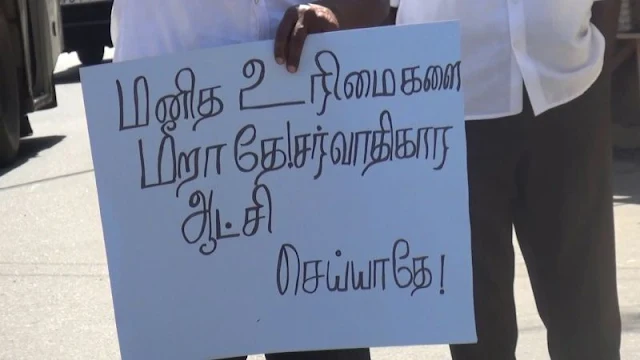 மனித உரிமைகளை
மீறாதே! சர்வாதிகார
ஆட்சி
செய்யாதே!